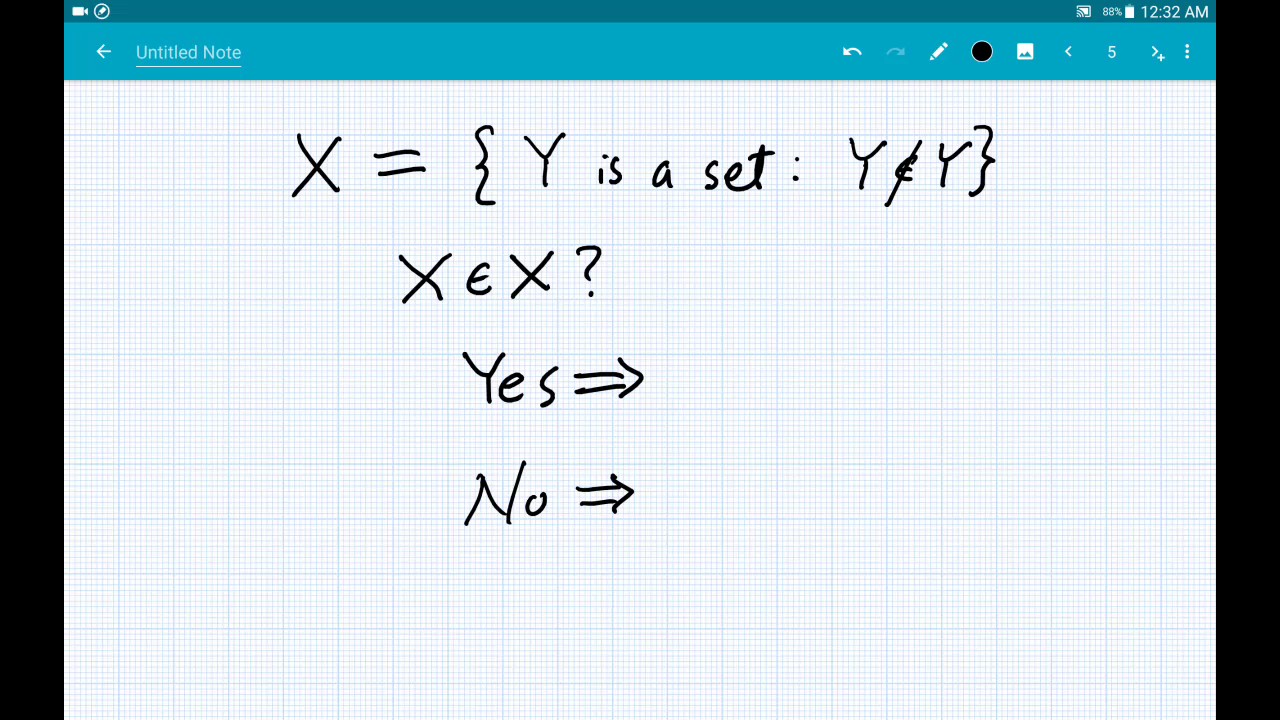 88% 12:32 AM
Untitled Note 5
X = { Y is a set : Y ∉ Y }
X ∈ X ?
Yes ⇒
No ⇒